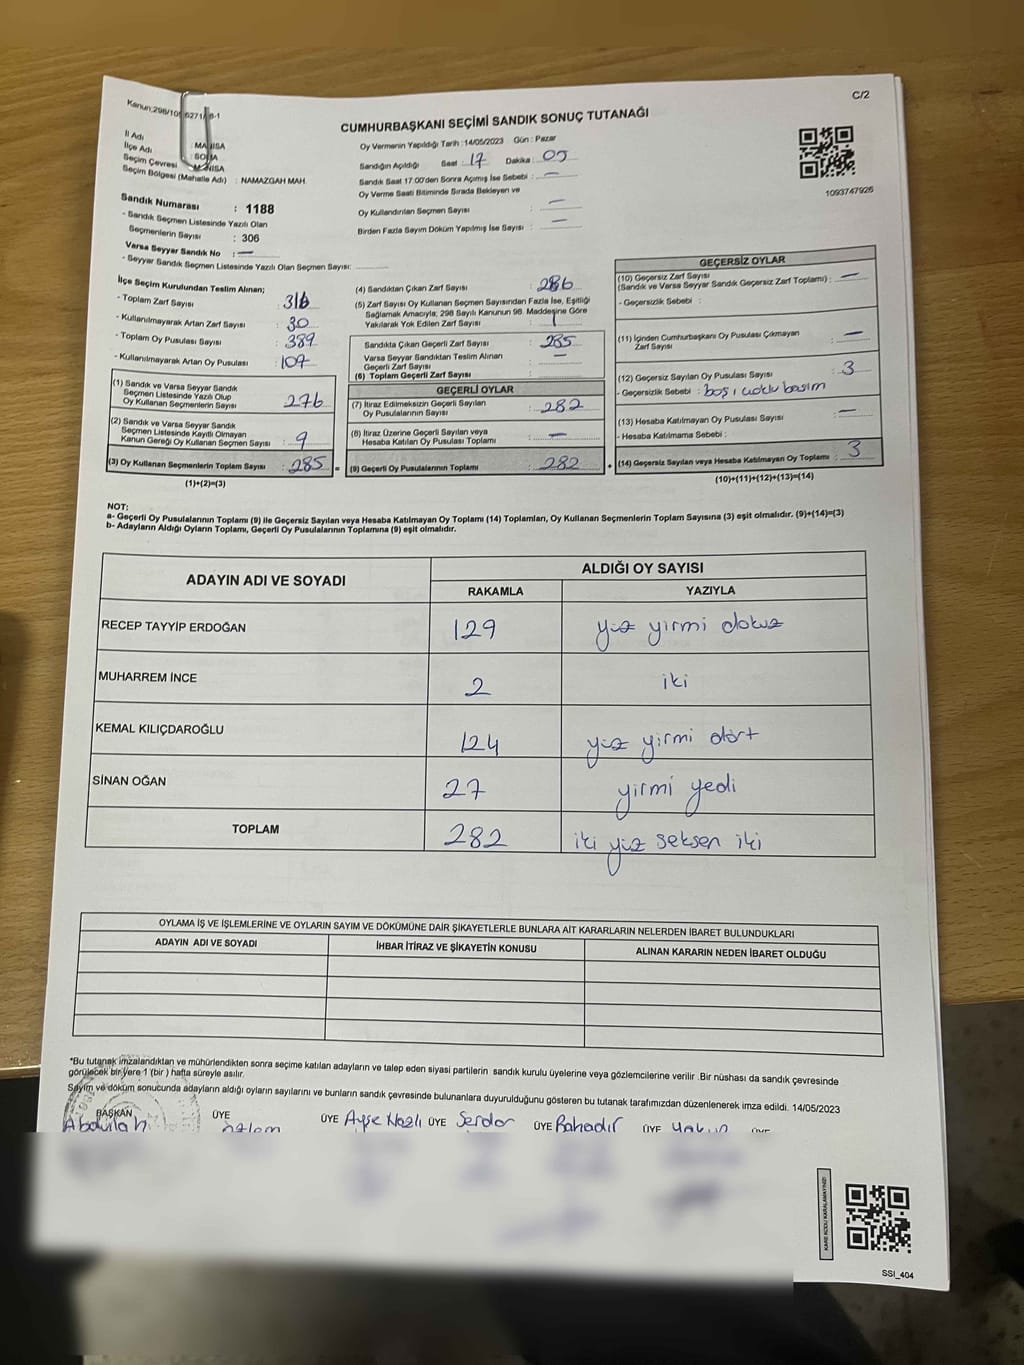 C/2
Kanun:298/105 6271/ 8-1
CUMHURBAŞKANI SEÇİMİ SANDIK SONUÇ TUTANAĞI
İl Adı : MANİSA
İlçe Adı : SOMA
Seçim Çevresi : MANİSA
Seçim Bölgesi (Mahalle Adı) : NAMAZGAH MAH.
Oy Vermenin Yapıldığı Tarih :14/05/2023 Gün : Pazar
Sandığın Açıldığı Saat : 17 Dakika : 05
Sandık Saat 17.00'den Sonra Açımış İse Sebebi : —
Oy Verme Saati Bitiminde Sırada Bekleyen ve
Oy Kullandırılan Seçmen Sayısı : —
Birden Fazla Sayım Döküm Yapılmış İse Sayısı : —
1093747926
Sandık Numarası : 1188
- Sandık Seçmen Listesinde Yazılı Olan
Seçmenlerin Sayısı : 306
Varsa Seyyar Sandık No : —
- Seyyar Sandık Seçmen Listesinde Yazılı Olan Seçmen Sayısı:
İlçe Seçim Kurulundan Teslim Alınan;
- Toplam Zarf Sayısı : 316
- Kullanılmayarak Artan Zarf Sayısı : 30
- Toplam Oy Pusulası Sayısı : 389
- Kullanılmayarak Artan Oy Pusulası : 107
(1) Sandık ve Varsa Seyyar Sandık
Seçmen Listesinde Yazılı Olup
Oy Kullanan Seçmenlerin Sayısı : 276
(2) Sandık ve Varsa Seyyar Sandık
Seçmen Listesinde Kayıtlı Olmayan
Kanun Gereği Oy Kullanan Seçmen Sayısı : 9
(3) Oy Kullanan Seçmenlerin Toplam Sayısı : 285 =
(1)+(2)=(3)
(4) Sandıktan Çıkan Zarf Sayısı : 286
(5) Zarf Sayısı Oy Kullanan Seçmen Sayısından Fazla İse, Eşitliği
Sağlamak Amacıyla, 298 Sayılı Kanunun 98. Maddesine Göre
Yakılarak Yok Edilen Zarf Sayısı : 1
Sandıkta Çıkan Geçerli Zarf Sayısı : 285
Varsa Seyyar Sandıktan Teslim Alınan
Geçerli Zarf Sayısı : —
(6) Toplam Geçerli Zarf Sayısı :
GEÇERLİ OYLAR
(7) İtiraz Edilmeksizin Geçerli Sayılan
Oy Pusulalarının Sayısı : 282
(8) İtiraz Üzerine Geçerli Sayılan veya
Hesaba Katılan Oy Pusulası Toplamı : —
(9) Geçerli Oy Pusulalarının Toplamı : 282 +
GEÇERSİZ OYLAR
(10) Geçersiz Zarf Sayısı
(Sandık ve Varsa Seyyar Sandık Geçersiz Zarf Toplamı) : —
- Geçersizlik Sebebi :
(11) İçinden Cumhurbaşkanı Oy Pusulası Çıkmayan
Zarf Sayısı : —
(12) Geçersiz Sayılan Oy Pusulası Sayısı : 3
- Geçersizlik Sebebi : boş, çoklu basım
(13) Hesaba Katılmayan Oy Pusulası Sayısı : —
- Hesaba Katılmama Sebebi :
(14) Geçersiz Sayılan veya Hesaba Katılmayan Oy Toplamı : 3
(10)+(11)+(12)+(13)=(14)
NOT:
a- Geçerli Oy Pusulalarının Toplamı (9) ile Geçersiz Sayılan veya Hesaba Katılmayan Oy Toplamı (14) Toplamları, Oy Kullanan Seçmenlerin Toplam Sayısına (3) eşit olmalıdır. (9)+(14)=(3)
b- Adayların Aldığı Oyların Toplamı, Geçerli Oy Pusulalarının Toplamına (9) eşit olmalıdır.
ADAYIN ADI VE SOYADI ALDIĞI OY SAYISI
RAKAMLA YAZIYLA
RECEP TAYYİP ERDOĞAN 129 yüz yirmi dokuz
MUHARREM İNCE 2 iki
KEMAL KILIÇDAROĞLU 124 yüz yirmi dört
SİNAN OĞAN 27 yirmi yedi
TOPLAM 282 iki yüz seksen iki
OYLAMA İŞ VE İŞLEMLERİNE VE OYLARIN SAYIM VE DÖKÜMÜNE DAİR ŞİKAYETLERLE BUNLARA AİT KARARLARIN NELERDEN İBARET BULUNDUKLARI
ADAYIN ADI VE SOYADI İHBAR İTİRAZ VE ŞİKAYETİN KONUSU ALINAN KARARIN NEDEN İBARET OLDUĞU
*Bu tutanak imzalandıktan ve mühürlendikten sonra seçime katılan adayların ve talep eden siyasi partilerin sandık kurulu üyelerine veya gözlemcilerine verilir .Bir nüshası da sandık çevresinde
görülecek bir yere 1 (bir ) hafta süreyle asılır.
Sayım ve döküm sonucunda adayların aldığı oyların sayılarını ve bunların sandık çevresinde bulunanlara duyurulduğunu gösteren bu tutanak tarafımızdan düzenlenerek imza edildi. 14/05/2023
BAŞKAN ÜYE ÜYE Ayşe Nazlı ÜYE Serdar ÜYE Bahadır ÜYE Yakup ÜYE
Abdullah Özlem
KARE KODU KARALAMAYINIZ!
SSI_404